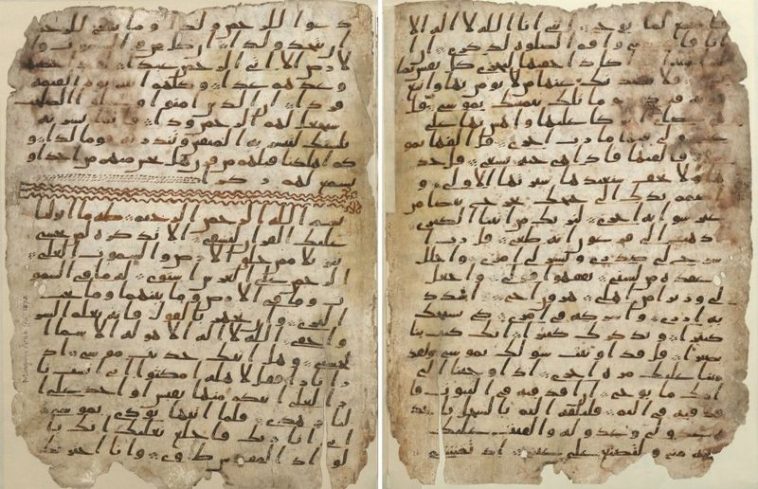 دعوا للرحمن ولدا وما ينبغي للرحمن
ان يتخذ ولدا ان كل من في السموت وا
لارض الا اتي الرحمن عبدا لقد احصيهم
وعدهم عدا وكلهم اتيه يوم القيمة
فردا ان الذين امنوا وعملوا الصلحت
سيجعل لهم الرحمن ودا فانما يسرنه
بلسنك لتبشر به المتقين وتنذر به قوما لدا و
كم اهلكنا قبلهم من قرن هل تحس منهم من احد او
تسمع لهم ركزا
بسم الله الرحمن الرحيم طه ما انزلنا
عليك القران لتشقى الا تذكرة لمن يخشى
تنزيلا ممن خلق الارض والسموت العلى
الرحمن على العرش استوى له ما في السمو
ت وما في الارض وما بينهما وما تحت
الثرى وان تجهر بالقول فانه يعلم السر
واخفى الله لا اله الا هو له الاسما
الحسنى وهل اتيك حديث موسى اذ
را نارا فقل لاهله امكثوا اني انست نا
را لعلي اتيكم منها بقبس او اجد على ا
لنار هدى فلما اتيها نودي يموسى
اني انا ربك فاخلع نعليك انك با
لواد المقدس طوى وانا اخترتك
فاستمع لما يوحى انني انا الله لا اله الا
انا فاعبدني واقم الصلوة لذكري ان ا
لساعة اتية اكاد اخفيها لتجزى كل نفس بما
تسعى فلا يصدنك عنها من لا يومن بها واتبع
هويه فتردى وما تلك بيمينك يموسى قل
هي عصاي اتوكا عليها واهش بها على
غنمي ولي فيها مارب اخرى قل القها يمو
سى فالقيها فاذا هي حية تسعى قل خذ
ها ولا تخف سنعيدها سيرتها الاولى و
اضمم يدك الى جنحك تخرج بيضا من
غير سو اية اخرى لنريك من ايتنا الكبرى
اذهب الى فرعون انه طغى قل رب ا
شرح لي صدري ويسر لي امري واحلل
عقدة من لسني يفقهوا قولي واجعل
لي وزيرا من اهلي هرون اخي اشدد
به ازري واشركه في امري كي نسبحك
كثيرا ونذكرك كثيرا انك كنت بنا
بصيرا قل قد اوتيت سولك يموسى ولقد
مننا عليك مرة اخرى اذ اوحينا الى
امك ما يوحى ان اقذفيه في التبوت فا
قذفيه في اليم فليلقه اليم بالسحل ياخذ
ه عدو لي وعدو له والقيت عليك
محبة مني ولتصنع على عيني اذ تمشي